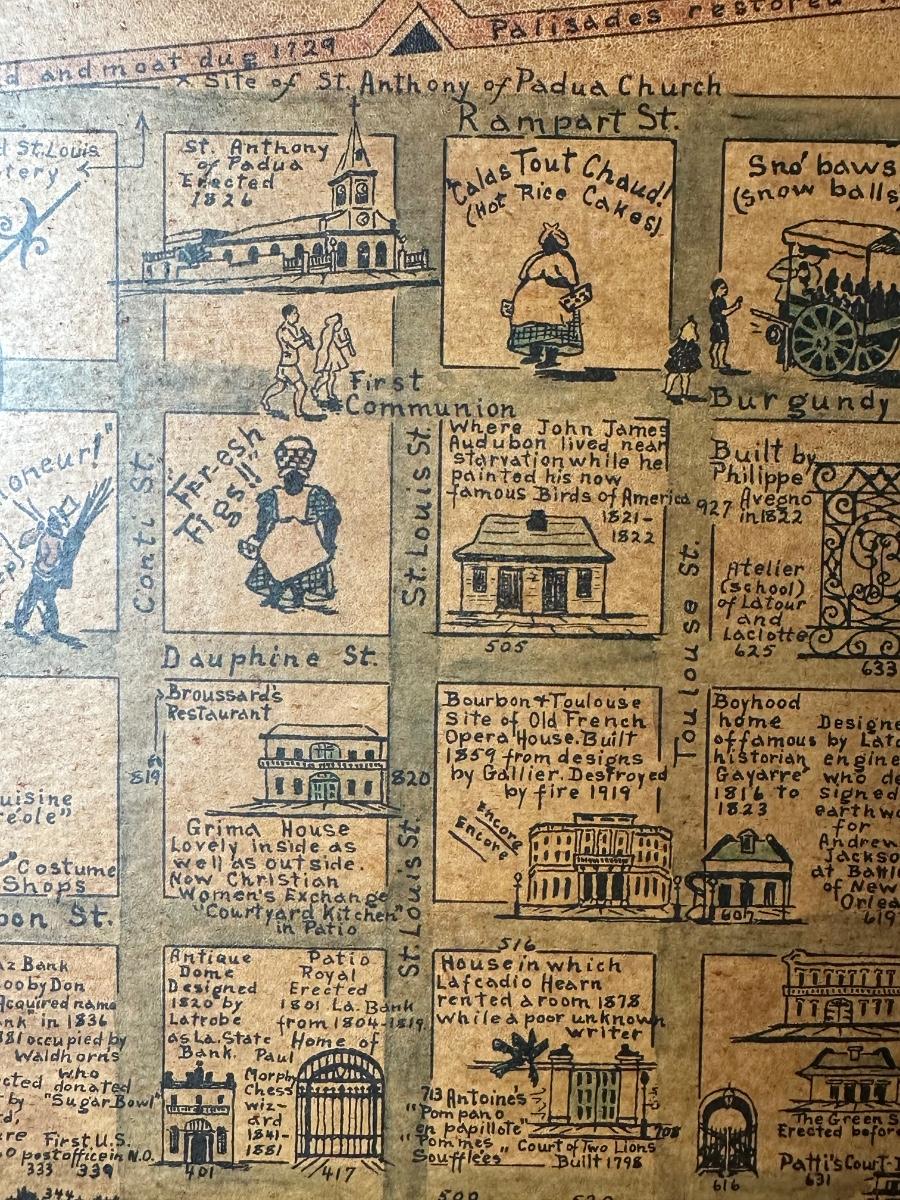 d and moat dug 1729
Palisades restored
x Site of St. Anthony of Padua Church
Rampart St.
St. Louis
tery
St. Anthony
of Padua
Erected
1826
"Calas Tout Chaud!
(Hot Rice Cakes)
Sno' baws
(snow balls
First
Communion
Burgundy
oneur!"
Conti St.
"Fer-esh
Figs!!"
St. Louis St.
Where John James
Audubon lived near
starvation while he
painted his now
famous Birds of America
1821-
1822
505
Toulouse St.
Built by
Philippe
927 Avegno
in 1822
Atelier
(school)
of Latour
and
Laclotte
625
633
Dauphine St.
Broussard's
Restaurant
819
820
Grima House
Lovely inside as
well as outside
Now Christian
Women's Exchange
"Courtyard Kitchen"
in Patio
Bourbon & Toulouse
Site of Old French
Opera House. Built
1859 from designs
by Gallier. Destroyed
by fire 1919
Encore
Encore
Boyhood
home
of famous
historian
Gayarre'
1816 to
1823
607
Designe
by Lato
engine
who de
signed
earthw
for
Andrew
Jackso
at Battl
of New
Orlea
619
uisine
reole"
Costume
Shops
bon St.
St. Louis St.
az Bank
oo by Don
Acquired name
nk" in 1836
881 occupied by
Waldhorns
who
cted donated
by "Sugar Bowl"
d,
re First U.S.
o post office in N.O.
333 339
344
Antique
Dome
Designed
1820 by
Latrobe
as La. State
Bank.
401
Patio
Royal
Erected
1801 La. Bank
from 1804-1819
Home of
Paul
Morphy
Chess
wiz-
ard
1841-
1881
417
516
House in which
Lafcadio Hearn
rented a room 1878
while a poor unknown
writer
713 Antoine's
"Pompano
en papillote"
"Pommes
Soufflées"
Court of Two Lions
Built 1798
708
616
The Green S
Erected before
Patti's Court
631
500
520